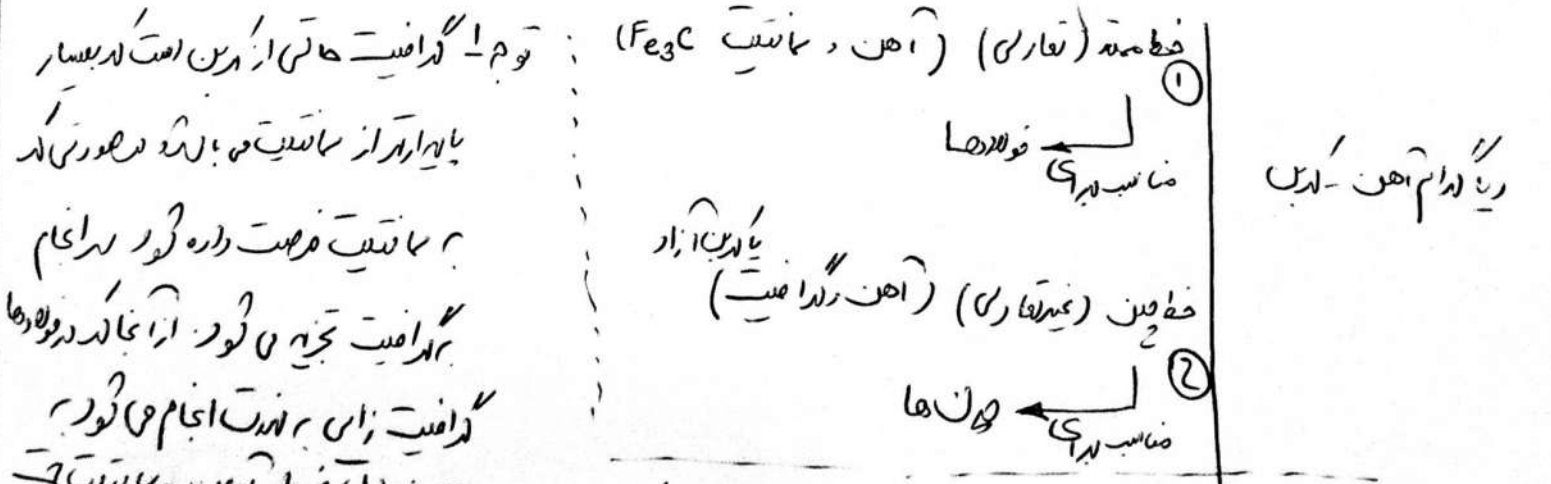 دیاگرام آهن - کربن
خط ممتد (تعادلی) (آهن و سمانتیت Fe3C)
①
مناسب برای فولادها
خط چین (غیرتعادلی) (آهن و گرافیت)
یا کربن آزاد
②
مناسب برای چدن‌ها
توجه! گرافیت حالتی از کربن است که بسیار
پایدارتر از سمانتیت می باشد در صورتی که
به سمانتیت فرصت داده شود سرانجام
به گرافیت تجزیه می شود. از آنجا که در فولادها
گرافیت زایی به ندرت انجام می شود به